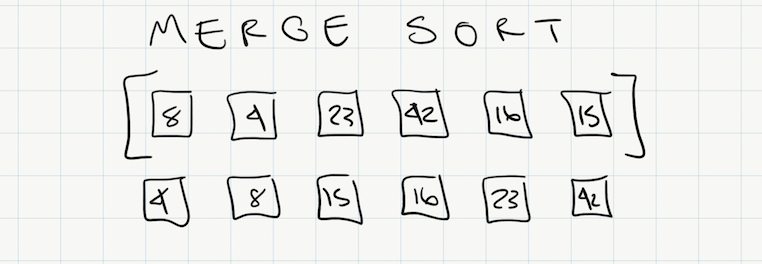 MERGE SORT
[ 8 4 23 42 16 15 ]
4 8 15 16 23 42